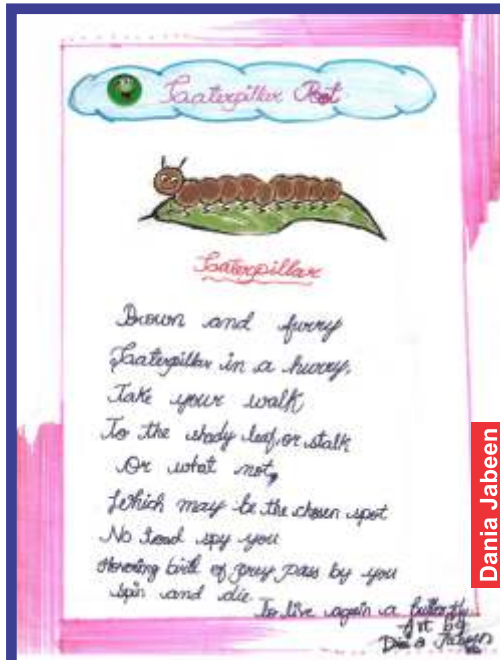 Caaterpillar Poet
Caterpillar
Brown and furry
Caaterpillar in a hurry,
Take your walk
To the shady leaf, or stalk
Or what not,
Which may be the chosen spot
No toad spy you
Hovering bird of prey pass by you
Spin and die
To live again a butterfly
Art by
Dania Jabeen
Dania Jabeen